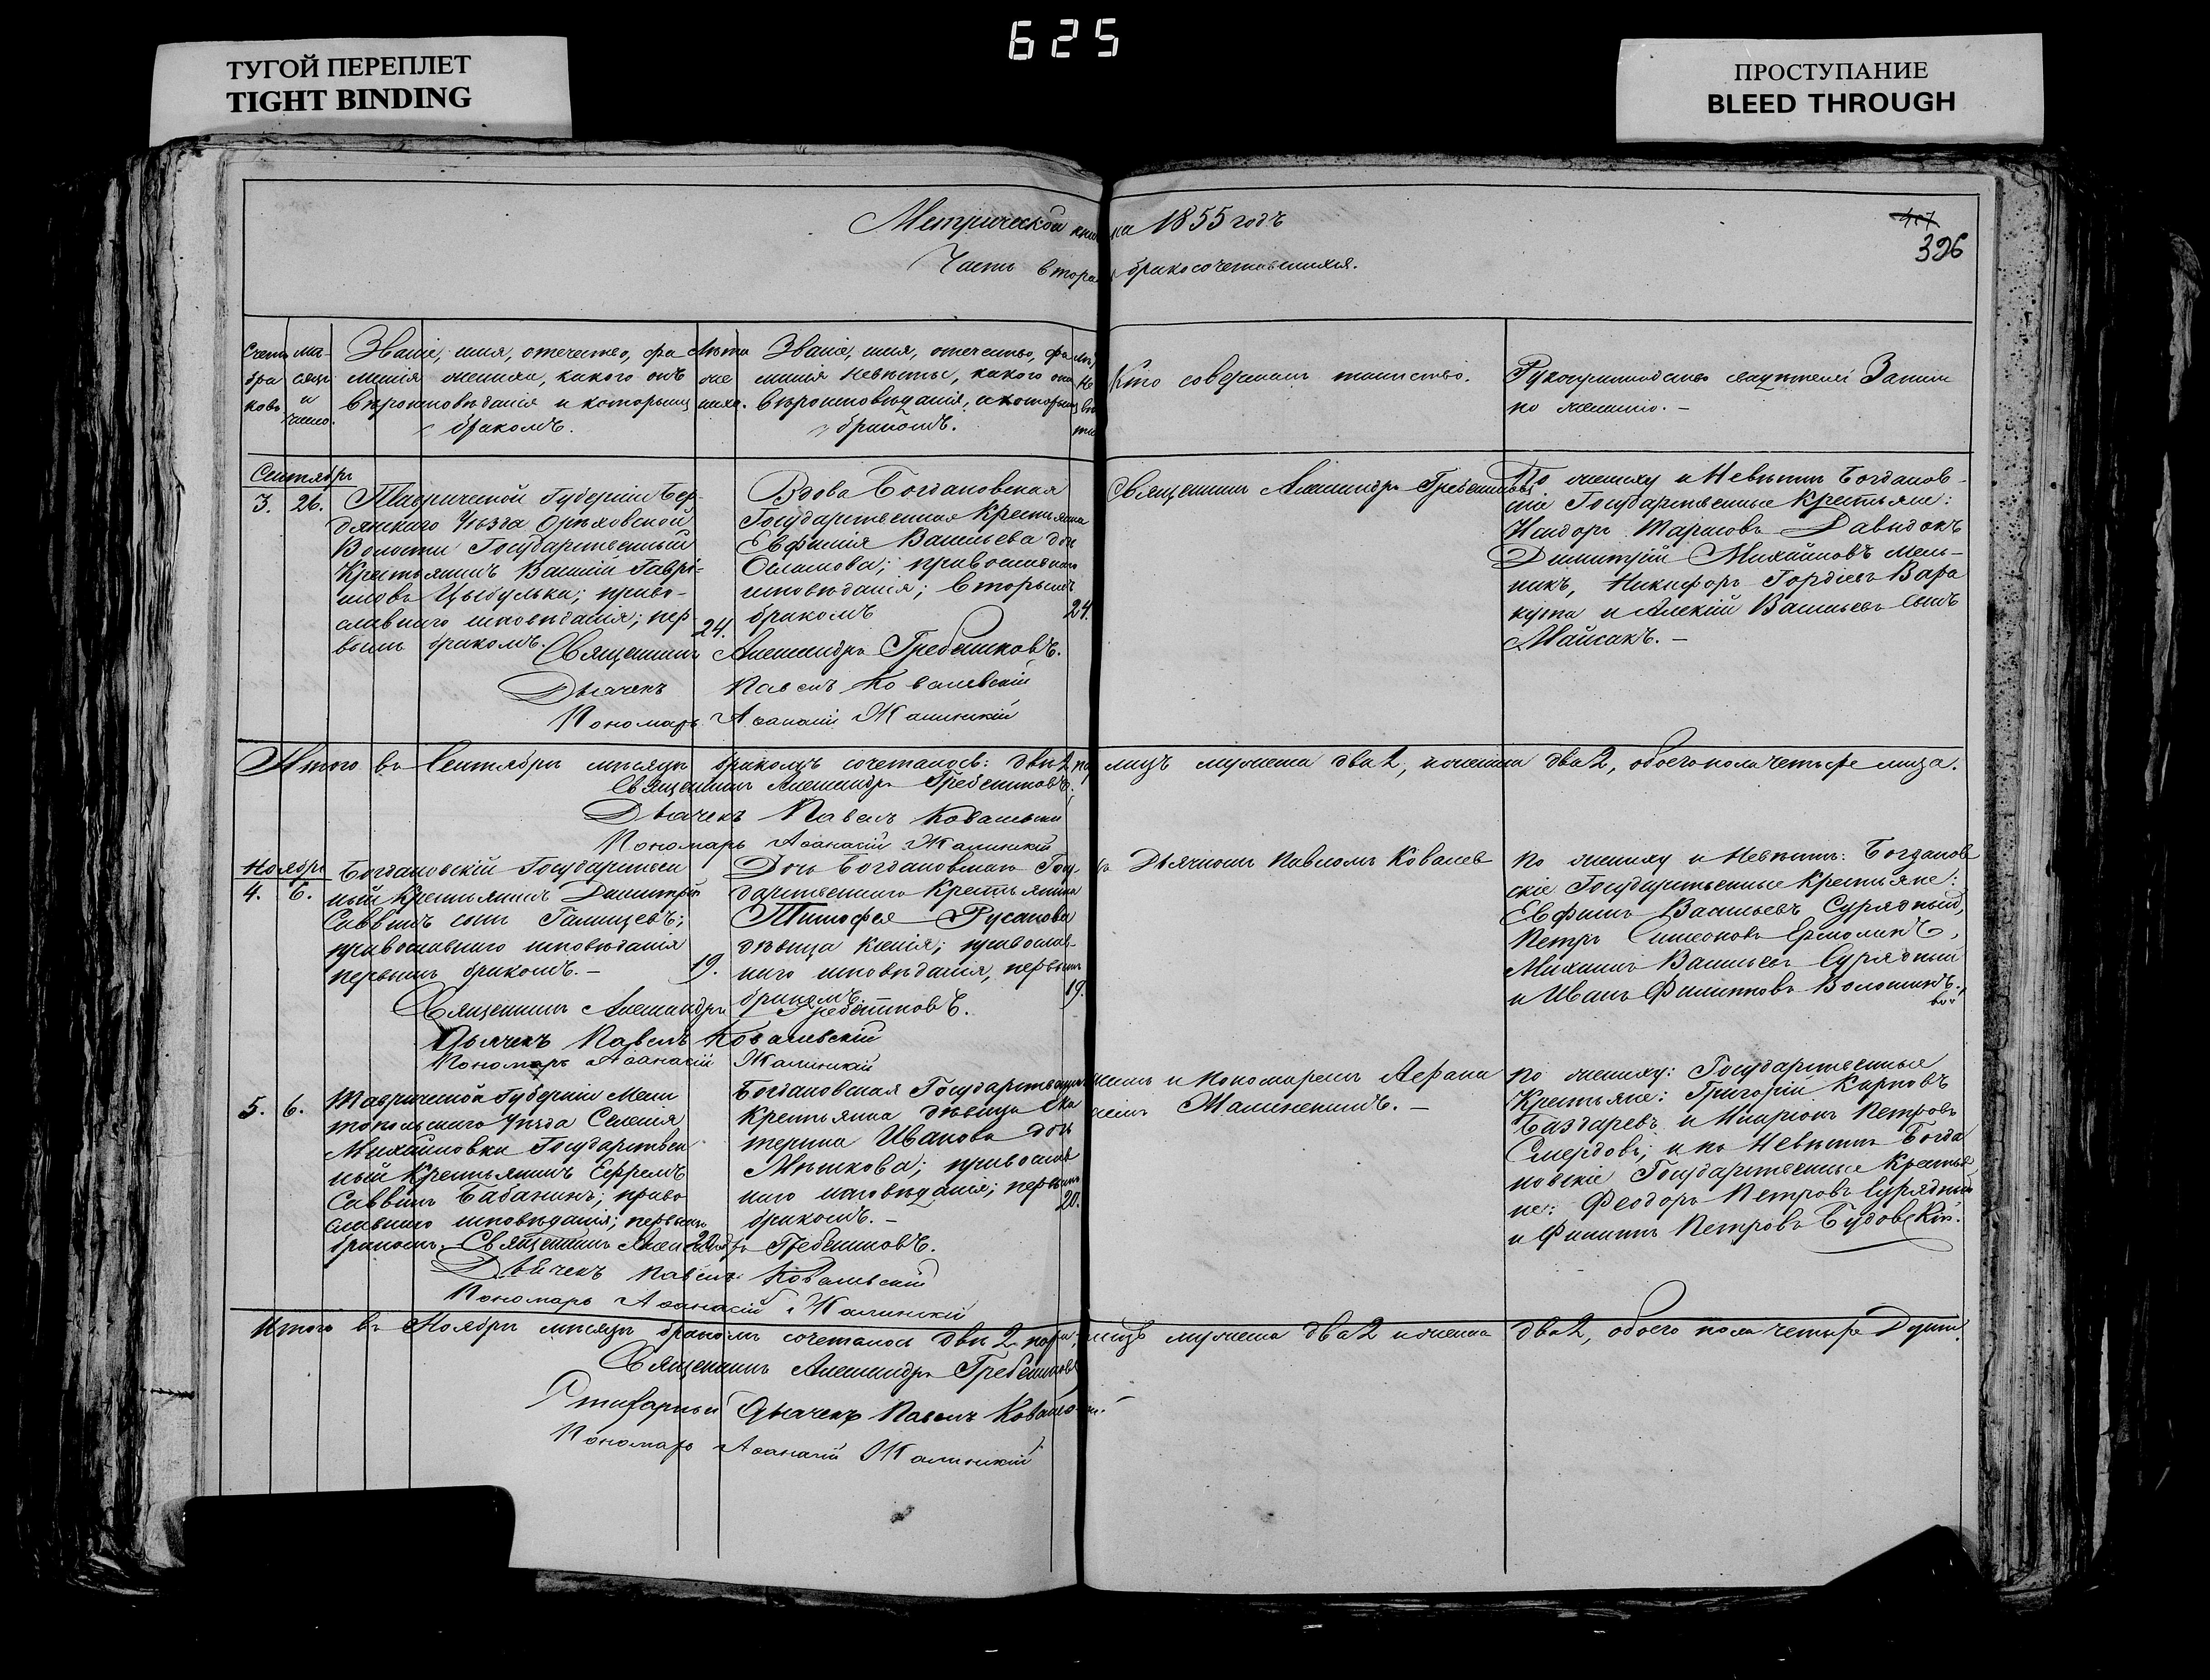 625
ТУГОЙ ПЕРЕПЛЕТ
TIGHT BINDING
ПРОСТУПАНИЕ
BLEED THROUGH
Метрической на 1855 годъ
Часть вторая бракосочетавшихся.
407
396
Счетъ
бра
ковъ
Мѣ-
сяцъ
и
число.
Званіе, имя, отечество, фа
милія жениха, какого онъ
вѣроисповѣданія и которымъ
бракомъ.
Лѣта
же
ниха.
Званіе, имя, отечество, фа
милія невѣсты, какого она
вѣроисповѣданія, и которымъ
бракомъ.
Кто совершалъ таинство.
Рукоприкладство свидѣтелей Записи
по желанію.
Сентябрь
3. 26.
Таврической Губерніи Бер-
дянскаго Уѣзда Орѣховской
Волости Государственный
Крестьянинъ Василій Гаврі-
иловъ Цыбулька; право-
славнаго исповѣданія; пер-
вымъ бракомъ.
24.
Вдова Богдановская
Государственная Крестьянка
Евфимія Васильева доч
православнаго
исповѣданія; вторымъ
бракомъ
24.
Священникъ Александръ Гребенниковъ
По жениху и Невѣстѣ Богданов-
скіе Государственные Крестьяне:
Исидоръ Марковъ Давыдокъ
Димитрій Михайловъ Мель-
никъ, Никифоръ Гордіевъ Вара
кута и Алексій Васильевъ сынъ
Майсакъ.
Священникъ Александръ Гребенниковъ.
Дьячекъ Павелъ Ковалевскій
Пономарь Аѳанасій Жалинскій
Итого въ Сентябрѣ мѣсяцѣ бракомъ сочеталось: двѣ 2 па лицъ мужеска два 2, и женска два 2, обоего пола четыре лица.
Священникъ Александръ Гребенниковъ.
Дьячекъ Павелъ Ковалевскій
Пономарь Аѳанасій Жалинскій
Ноябрь
4. 6.
Богдановскій Государствен
ный Крестьянинъ Димитрій
Саввинъ сынъ Галицевъ;
православнаго исповѣданія
первымъ бракомъ.
19.
Дочь Богдановскаго Госу
дарственнаго Крестьянина
Тимофея Русанова
дѣвица Ксенія; православ-
наго исповѣданія, первымъ
бракомъ
19.
Дьячкомъ Павломъ Ковалев
По жениху и Невѣстѣ: Богданов
скіе Государственные Крестьяне:
Евфимъ Васильевъ Сурядный,
Петръ Симеоновъ Ермолинъ,
Михаилъ Васильевъ Сурядный
и Иванъ Филипповъ Волошинъ.
Священникъ Александръ Гребенниковъ.
Дьячекъ Павелъ Ковалевскій
Пономарь Аѳанасій Жалинскій
5. 6.
Таврической Губерніи Мели
топольскаго Уѣзда Селенія
Михайловки Государствен
ный Крестьянинъ Ефремъ
Саввинъ Бабанинъ; право
славнаго исповѣданія; первымъ
бракомъ.
20
Богдановская Государственная
Крестьянка дѣвица Ека
терина Иванова доч
Мѣшкова; православ
наго исповѣданія; первымъ
бракомъ.
20.
и Пономаремъ Афана
сіемъ Жалинскимъ.
По жениху: Государственные
Крестьяне: Григорій Карповъ
Баздаревъ и Иларіонъ Петровъ
Смердовъ; и по Невѣстѣ Богда
новскіе Государственные Крестья
не: Феодоръ Петровъ Сурядный
и Филиппъ Петровъ Будовскій.
Священникъ Александръ Гребенниковъ.
Дьячекъ Павелъ Ковалевскій
Пономарь Аѳанасій Жалинскій
Итого въ Ноябрѣ мѣсяцѣ бракомъ сочеталось двѣ 2 пары, лицъ мужеска два 2 и женска два 2, обоего пола четыре Души.
Священникъ Александръ Гребенниковъ
Дьячекъ Павелъ
Пономарь Аѳанасій Жалинскій